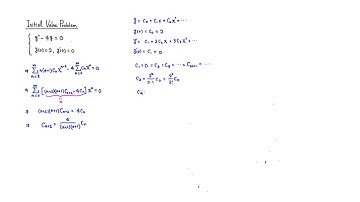 Initial Value Problem
y'' - 4y = 0
y(0) = 2, y'(0) = 0
⇒ ∑ n(n-1) Cₙ xⁿ⁻² - 4 ∑ Cₙ xⁿ = 0
⇒ ∑ [(n+2)(n+1) Cₙ₊₂ - 4Cₙ] xⁿ = 0
⇒ (n+2)(n+1) Cₙ₊₂ = 4Cₙ
⇒ Cₙ₊₂ = 4/((n+2)(n+1)) Cₙ
y = C₀ + C₁x + C₂x² + ⋯
y(0) = C₀ = 2
y' = C₁ + 2C₂x + 3C₃x² + ⋯
y'(0) = C₁ = 0
C₁ = 0 = C₃ = C₅ = ⋯ = C₂ₙ₊₁ = ⋯
C₂ =
C₄